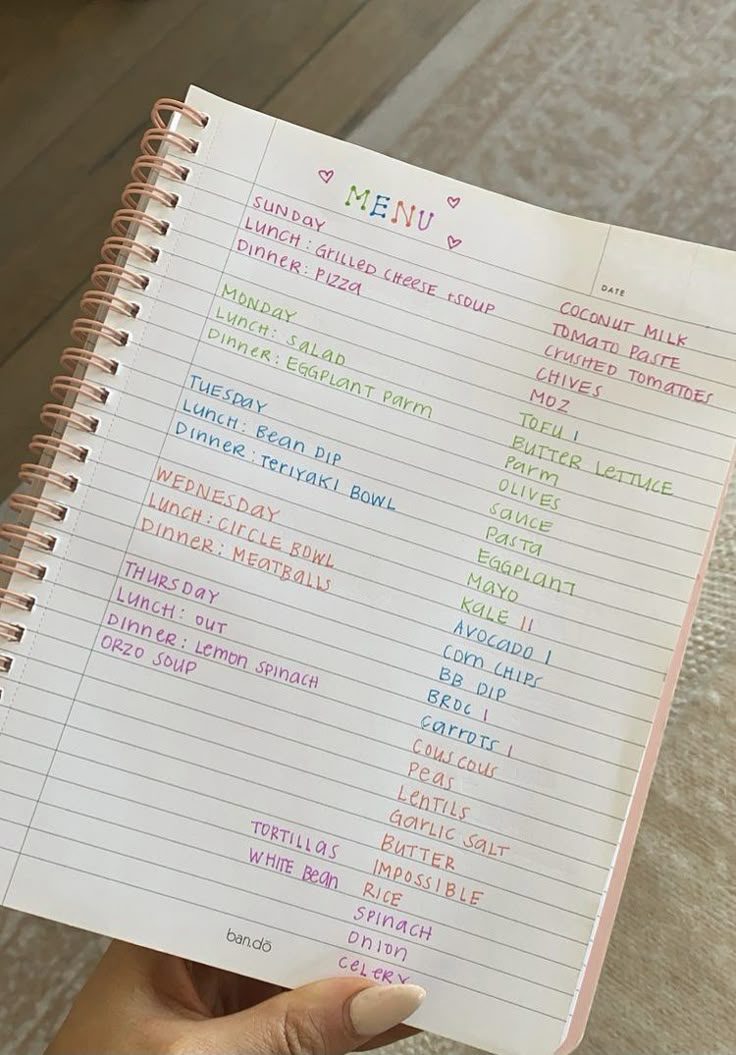 MENU
SUNDAY
LUNCH: GRILLED CHEESE +SOUP
DINNER: PIZZA
MONDAY
LUNCH: SALAD
DINNER: EGGPLANT PARM
TUESDAY
LUNCH: BEAN DIP
DINNER: TERIYAKI BOWL
WEDNESDAY
LUNCH: CIRCLE BOWL
DINNER: MEATBALLS
THURSDAY
LUNCH: OUT
DINNER: LEMON SPINACH
ORZO SOUP
DATE
COCONUT MILK
TOMATO PASTE
CRUSHED TOMATOES
CHIVES
MOZ
TOFU I
BUTTER LETTUCE
PARM
OLIVES
SAUCE
PASTA
EGGPLANT
MAYO
KALE II
AVOCADO I
CORN CHIPS
BB DIP
BROC I
CARROTS I
COUSCOUS
PEAS
LENTILS
GARLIC SALT
BUTTER
IMPOSSIBLE
RICE
SPINACH
ONION
CELERY
TORTILLAS
WHITE BEAN
ban.dō